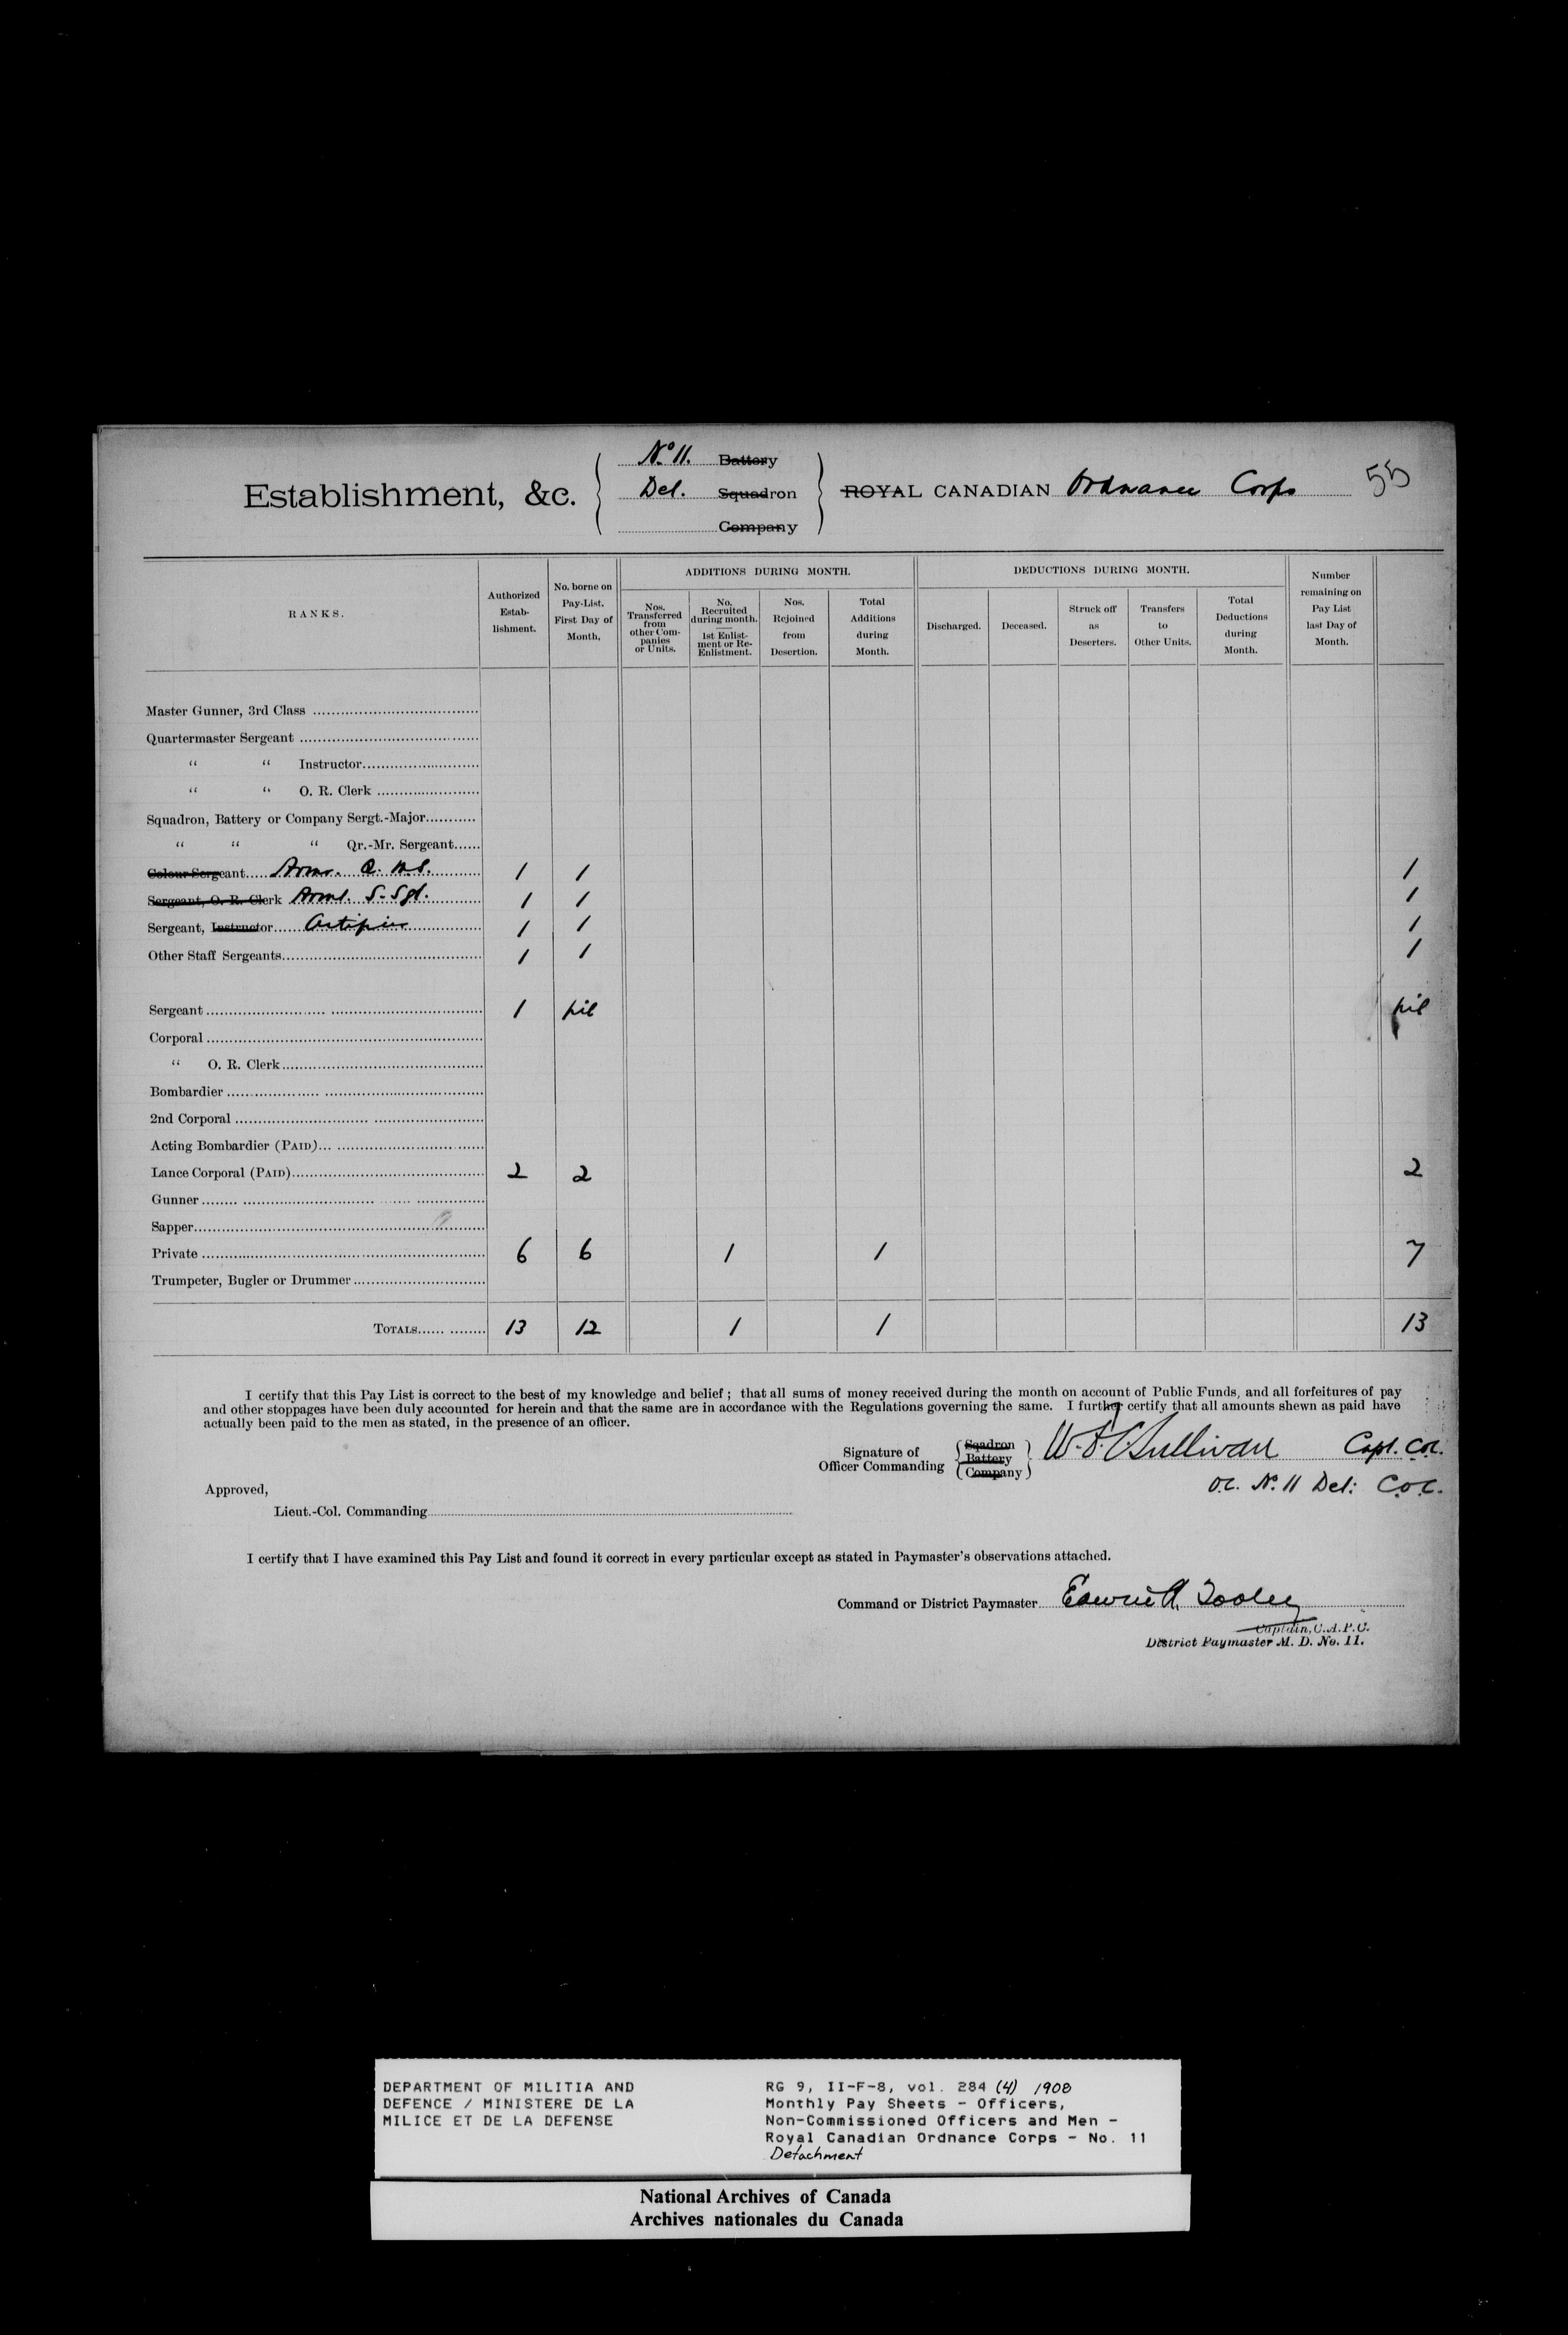 Establishment, &c.
No 11. Battery
Det. Squadron
Company
ROYAL CANADIAN Ordnance Corps 55
RANKS.
Authorized Estab-lishment.
No. borne on Pay-List. First Day of Month,
ADDITIONS DURING MONTH.
Nos. Transferred from other Com-panies or Units.
No. Recruited during month. 1st Enlist-ment or Re-Enlistment.
Nos. Rejoined from Desertion.
Total Additions during Month.
DEDUCTIONS DURING MONTH.
Discharged.
Deceased.
Struck off as Deserters.
Transfers to Other Units.
Total Deductions during Month.
Number remaining on Pay List last Day of Month.
Master Gunner, 3rd Class
Quartermaster Sergeant
“ “ Instructor
“ “ O. R. Clerk
Squadron, Battery or Company Sergt.-Major
“ “ “ Qr.-Mr. Sergeant
Colour Sergeant 1 1 1
Sergeant, O. R. Clerk S-Sgt. 1 1 1
Sergeant, Instructor 1 1 1
Other Staff Sergeants 1 1 1
Sergeant 1 nil nil
Corporal
“ O. R. Clerk
Bombardier
2nd Corporal
Acting Bombardier (PAID)
Lance Corporal (PAID) 2 2 2
Gunner
Sapper
Private 6 6 1 1 7
Trumpeter, Bugler or Drummer
TOTALS 13 12 1 1 13
I certify that this Pay List is correct to the best of my knowledge and belief ; that all sums of money received during the month on account of Public Funds, and all forfeitures of pay
and other stoppages have been duly accounted for herein and that the same are in accordance with the Regulations governing the same. I further certify that all amounts shewn as paid have
actually been paid to the men as stated, in the presence of an officer.
Signature of Officer Commanding
Sqadron
Battery
Company
O'Sullivan Capt. C.O.C.
O.C. No. 11 Det: C.O.C.
Approved,
Lieut.-Col. Commanding
I certify that I have examined this Pay List and found it correct in every particular except as stated in Paymaster's observations attached.
Command or District Paymaster
Captain, C.A.P.C.
District Paymaster M. D. No. 11.
DEPARTMENT OF MILITIA AND
DEFENCE / MINISTERE DE LA
MILICE ET DE LA DEFENSE
RG 9, II-F-8, vol. 284 (4) 1908
Monthly Pay Sheets - Officers,
Non-Commissioned Officers and Men -
Royal Canadian Ordnance Corps - No. 11
Detachment
National Archives of Canada
Archives nationales du Canada